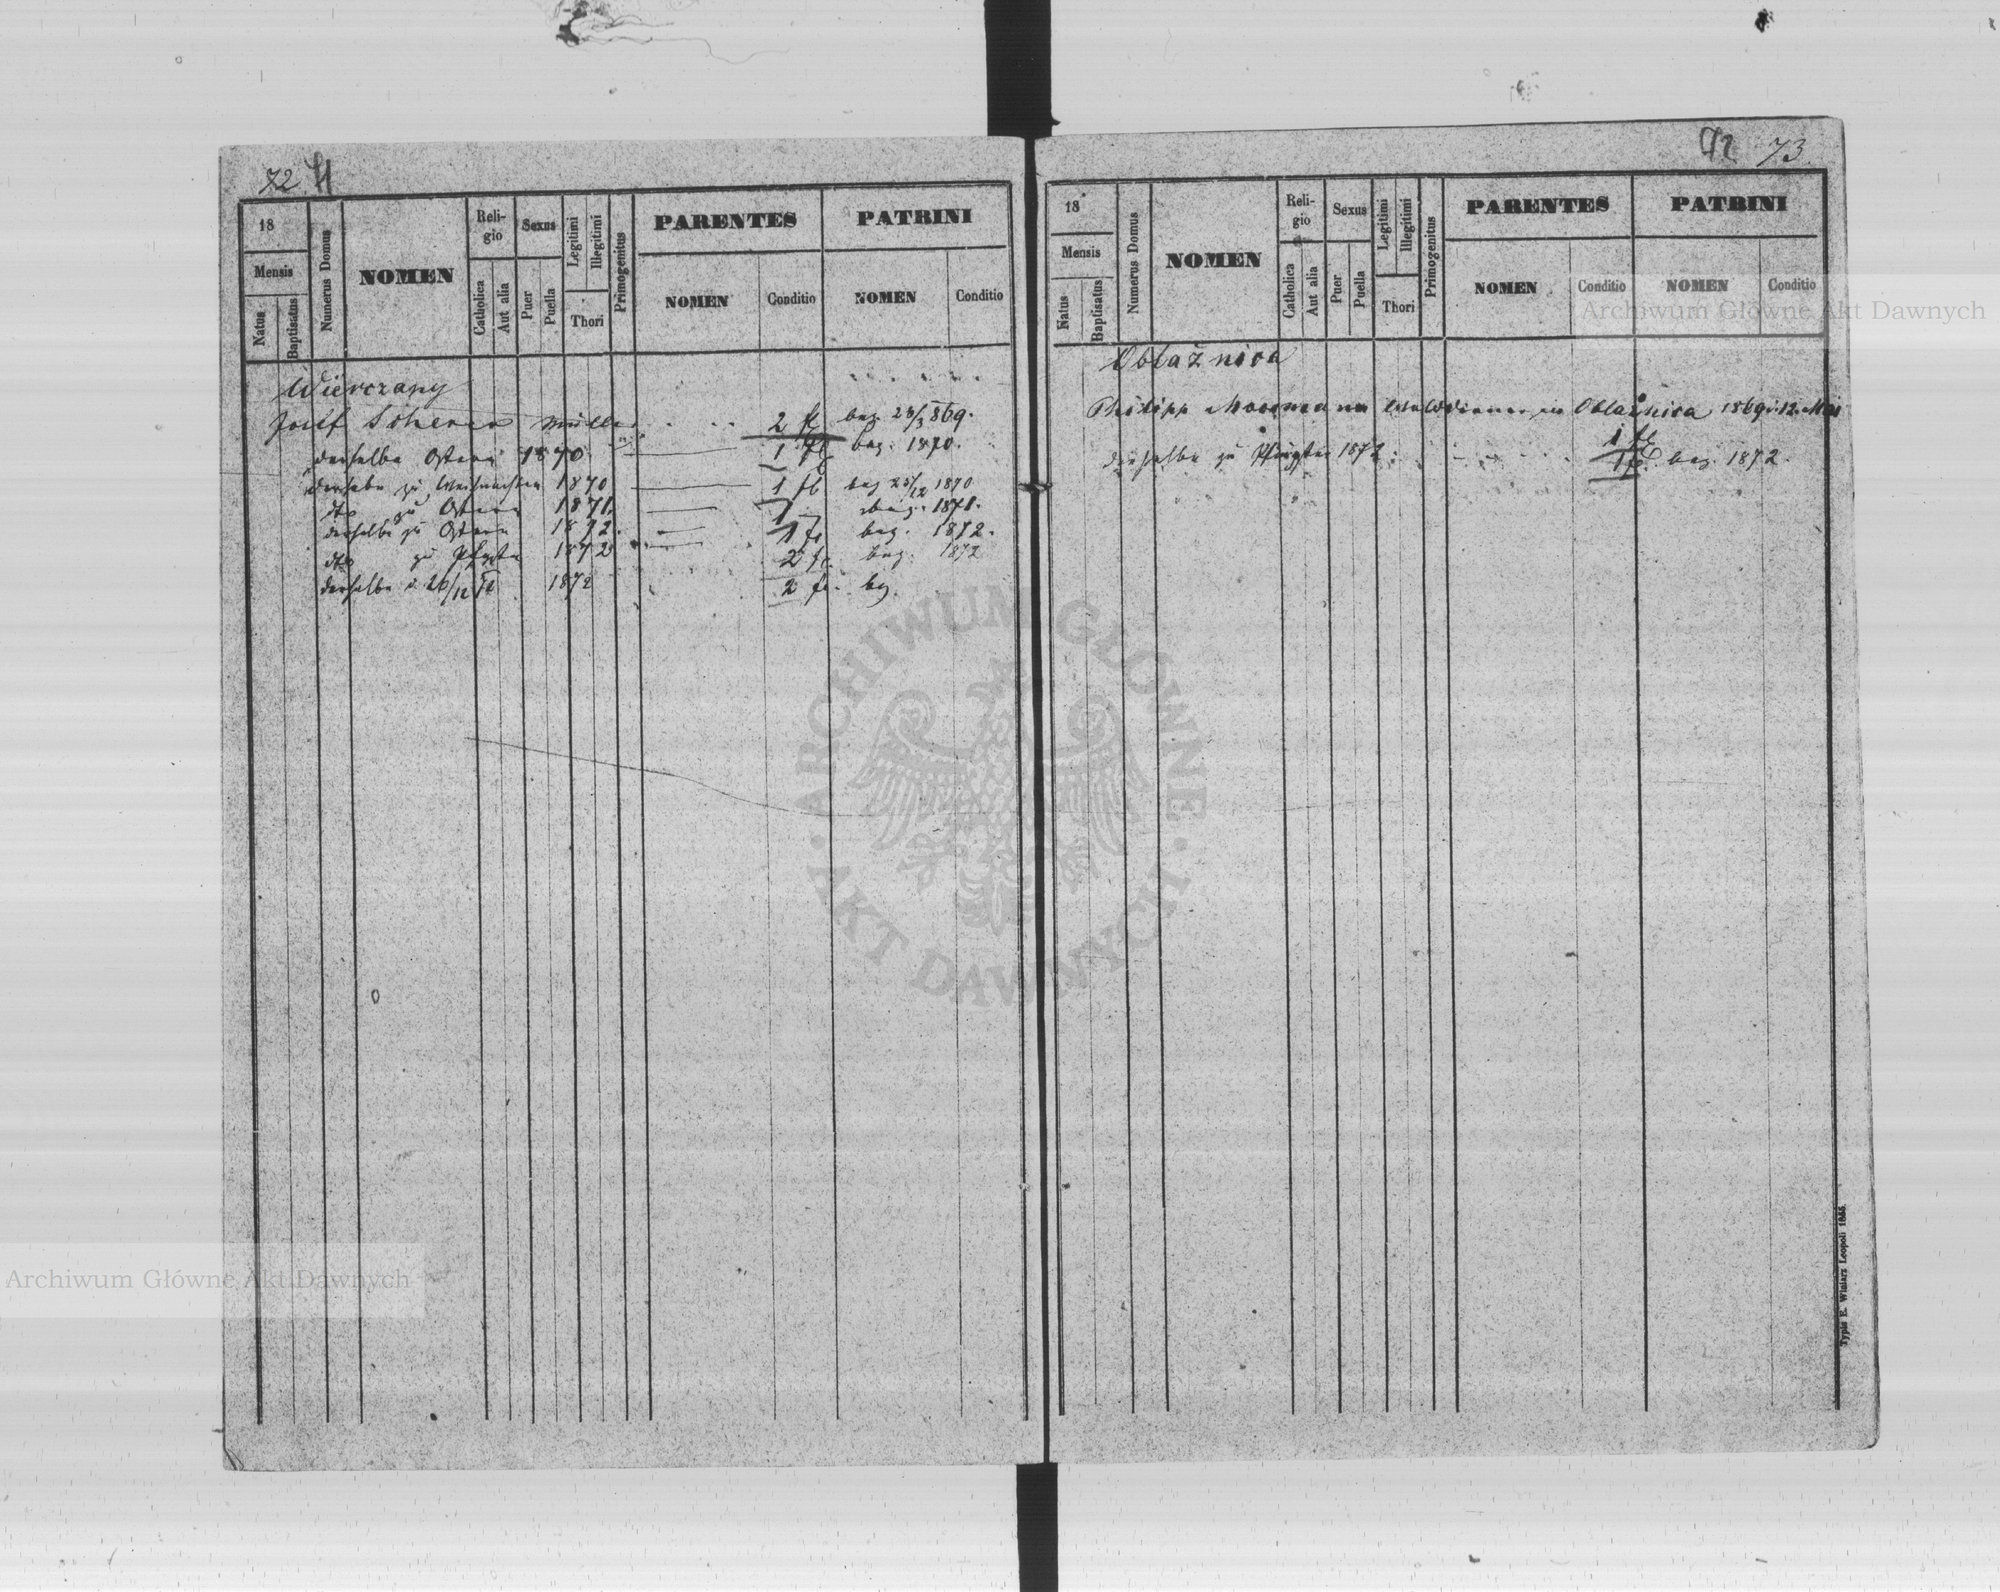 72 71
18
Mensis
Natus
Baptisatus
Numerus Domus
NOMEN
Reli-
gio
Catholica
Aut alia
Sexus
Puer
Puella
Legitimi
Illegitimi
Thori
Primogenitus
PARENTES
NOMEN
Conditio
PATRINI
NOMEN
Conditio
Wierczany
Josef Scherer Müller 2 fl bez. 28/3 869.
derselbe Ostern 1870 1 fl bez. 1870.
derselbe zu Weihnachten 1870 1 fl bez 25/12 1870
dto zu Ostern 1871 1 bez. 1871.
derselbe zu Ostern 1872. 1 fl bez. 1872.
dto zu Pfgsten 1872 2 fl. bez. 1872
derselbe d. 26/12 1872 2 fl. bez.
72 73.
18
Mensis
Natus
Baptisatus
Numerus Domus
NOMEN
Reli-
gio
Catholica
Aut alia
Sexus
Puer
Puella
Legitimi
Illegitimi
Thori
Primogenitus
PARENTES
NOMEN
Conditio
PATRINI
NOMEN
Conditio
Oblaźnica
Philipp Moosmann in Oblaźnica 1869 12. Mai
1 fl
derselbe zu Pfingsten 1872 1 fl. bez. 1872.
Typis E. Winiarz Leopoli 1855.
Archiwum Główne Akt Dawnych
Archiwum Główne Akt Dawnych
ARCHIWUM GŁÓWNE · AKT DAWNYCH ·